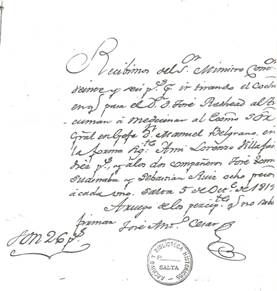 Recibimos del Sr. Ministro
y seis ps. q. ir tirando el Coche
en q. pasa el Dr. Dn. José Redhead al Tu-
cuman á medicinar al Exmo Sor.
Gral en Gefe Dn. Manuel Belgrano, en
la forma sigte. Ana Lorenzo Villafa
diez ps. y a los dos compañeros José
y Sebastian Ruiz ocho pesos
á cada uno. Salta 5 de Octe. de 1819
A ruego de los q. no sabn.
firmar José Anto.
Son 26 ps.
ARCHIVO Y BIBLIOTECA HISTORICOS
SALTA